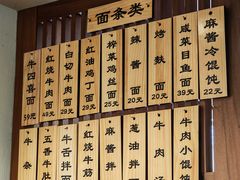 面条类
牛四喜面
59元
红烧牛肉面
49元
白切牛肉面
29元
红油鸡丁面
28元
榨菜鸡丝面
25元
辣酱面
20元
烤麸面
20元
咸菜目鱼面
39元
麻酱冷馄饨
22元
牛杂
五香牛肚
红烧牛筋
牛舌拌面
麻酱拌
葱油拌
牛肉汤
牛肉小馄饨